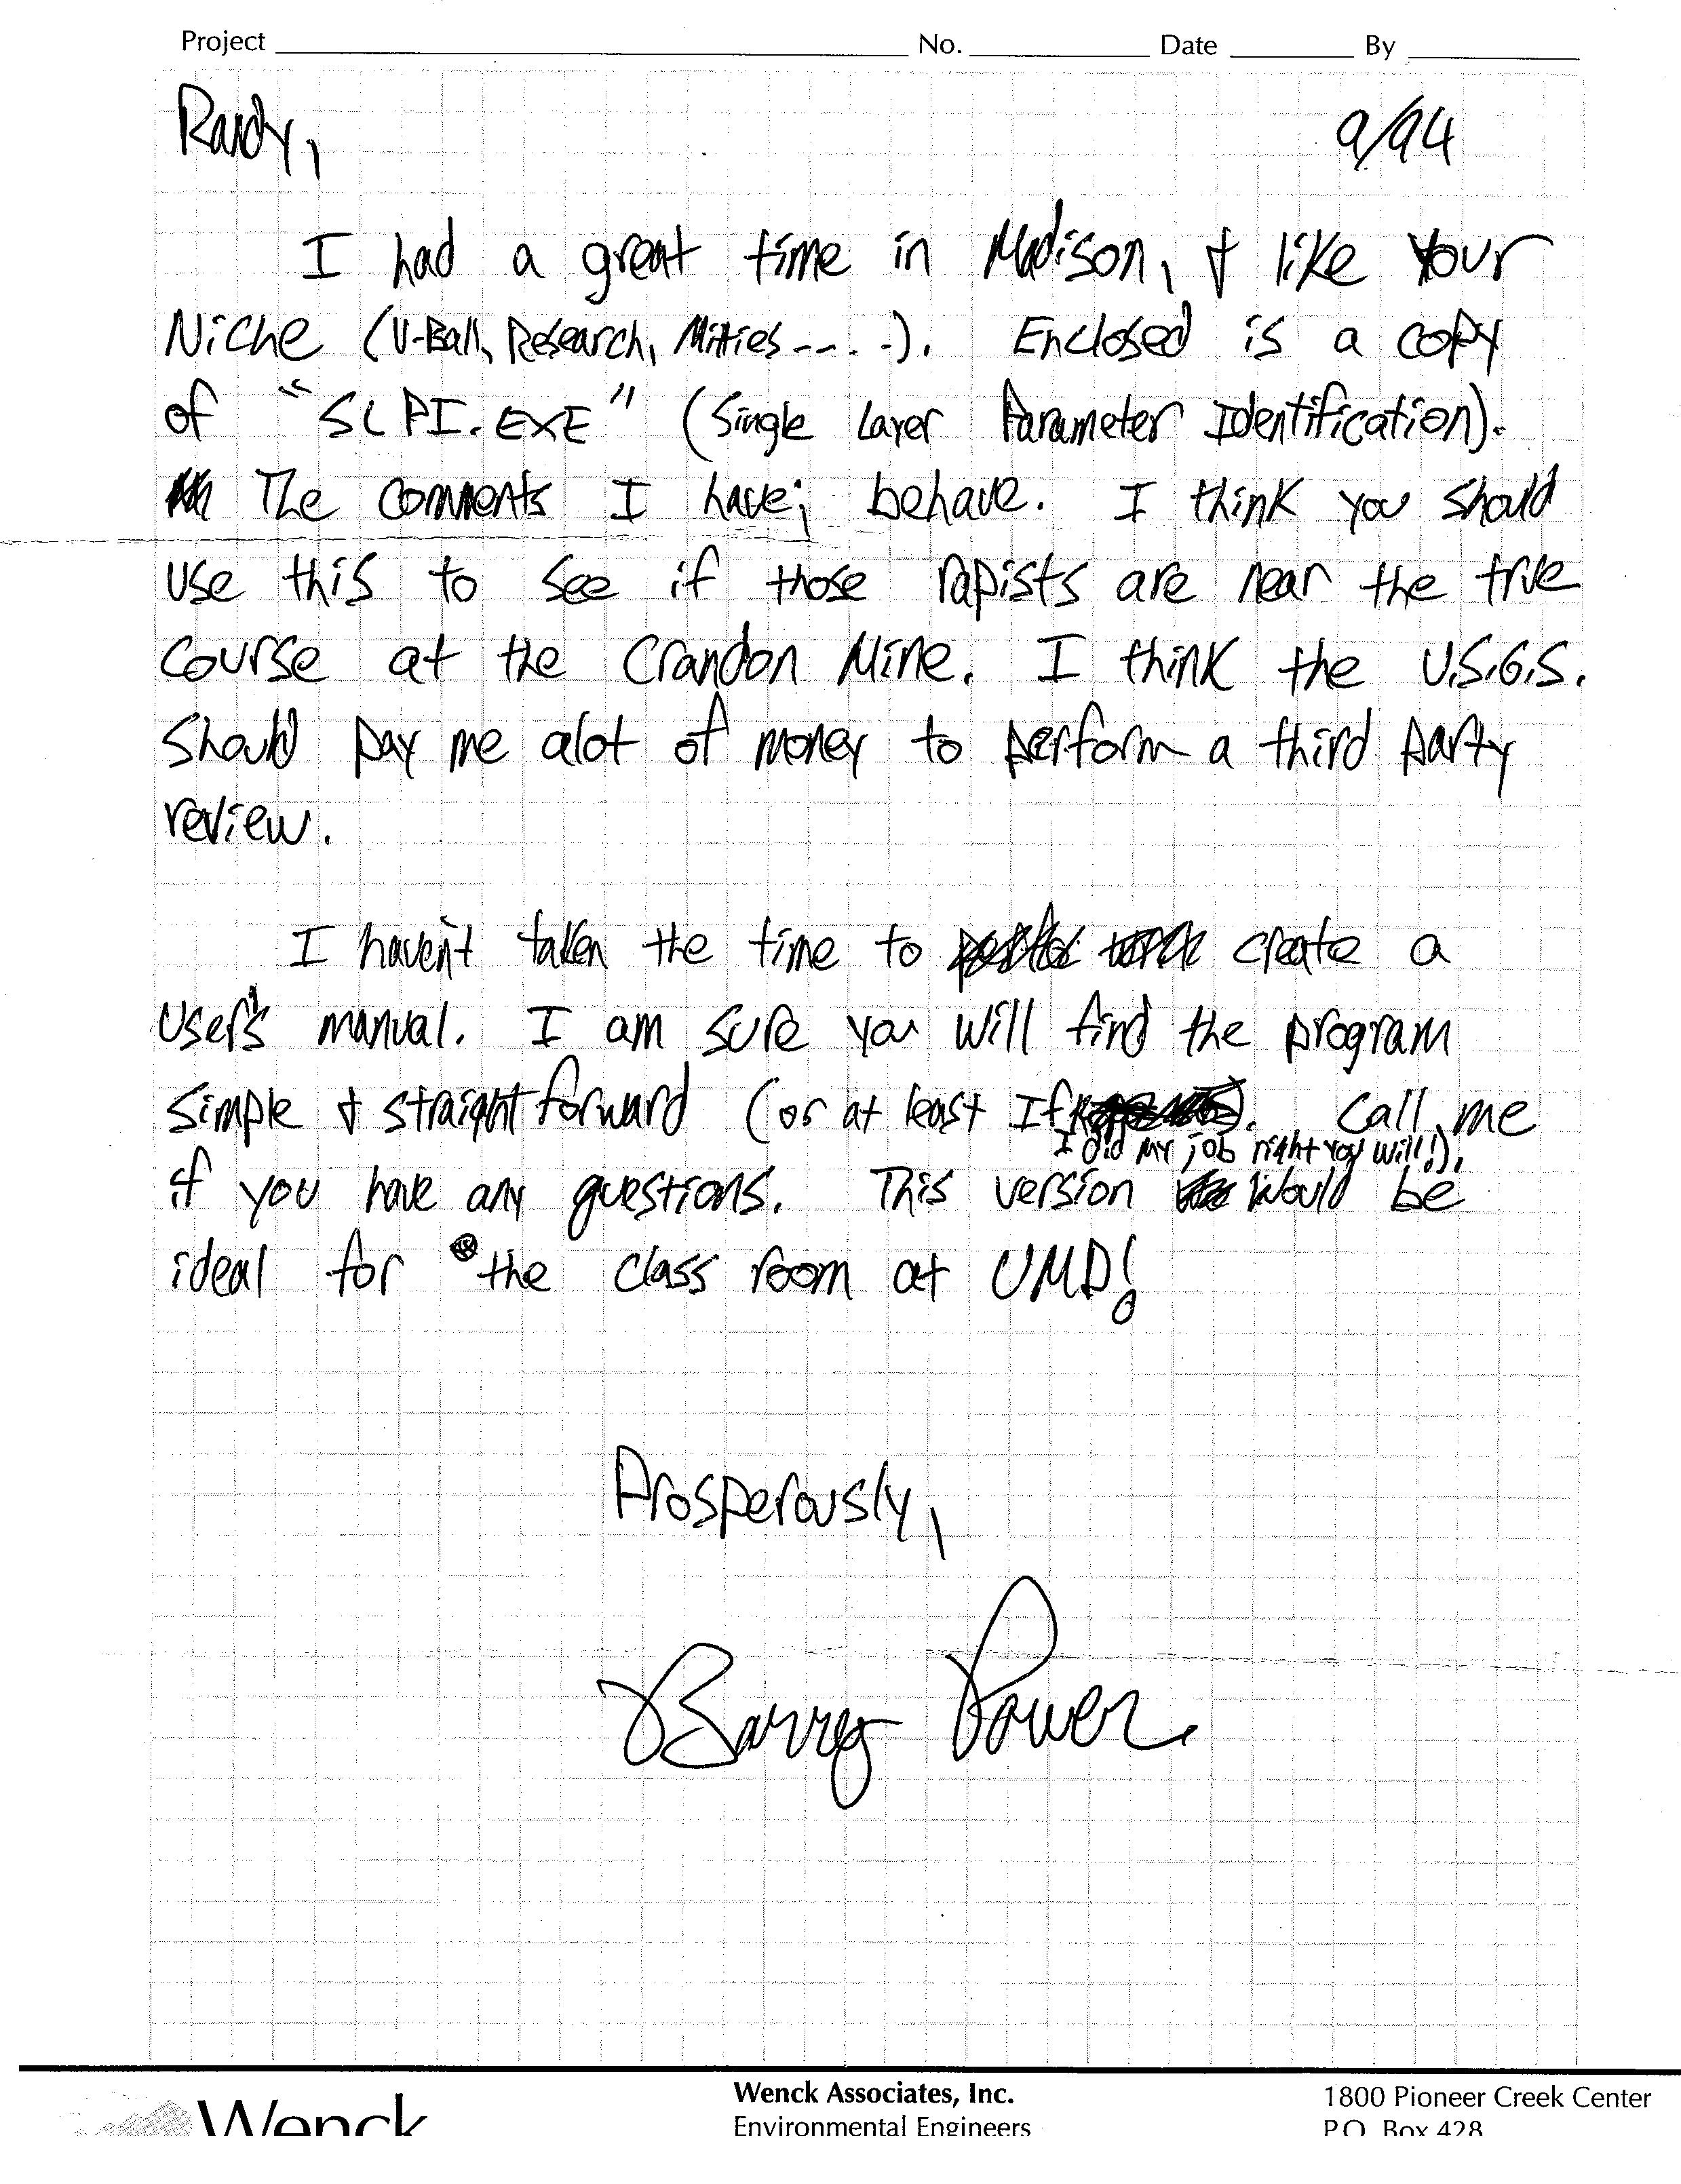 Project No. Date By
Randy, 9/94
I had a great time in Madison, & like your
Niche (V-Ball, Research, Mitties -- . . -). Enclosed is a copy
of "SLPI.EXE" (Single Layer Parameter Identification).
The comments I have; behave. I think you should
use this to see if those rapists are near the true
course at the Crandon Mine. I think the U.S.G.S.
should pay me alot of money to perform a third party
review.
I haven't taken the time to create a
User's manual. I am sure you will find the program
simple & straight forward (or at least If . Call me
I did my job right you will!).
if you have any questions. This version would be
ideal for the class room at UMD!
Prosperously,
Barry Power
Wenck
Wenck Associates, Inc.
Environmental Engineers
1800 Pioneer Creek Center
P.O. Box 428